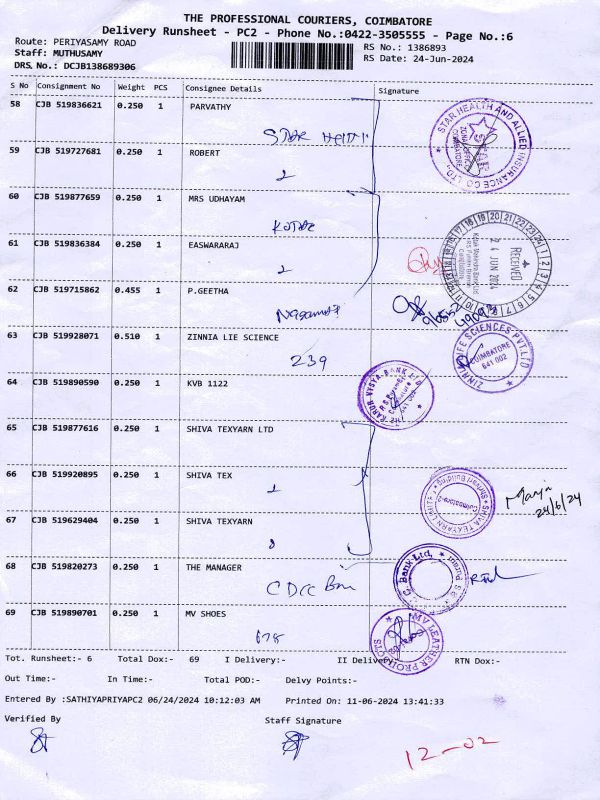 THE PROFESSIONAL COURIERS, COIMBATORE
Delivery Runsheet - PC2 - Phone No.:0422-3505555 - Page No.:6
Route: PERIYASAMY ROAD
RS No.: 1386893
Staff: MUTHUSAMY
RS Date: 24-Jun-2024
DRS No.: DCJB138689306
S No Consignment No Weight PCS Consignee Details Signature
58 CJB 519836621 0.250 1 PARVATHY
STAR HEALTH AND ALLIED INSURANCE CO. LTD.
59 CJB 519727681 0.250 1 ROBERT
60 CJB 519877659 0.250 1 MRS UDHAYAM
61 CJB 519836384 0.250 1 EASWARARAJ
RECEIVED
24 JUN 2024
62 CJB 519715862 0.455 1 P.GEETHA
63 CJB 519928071 0.510 1 ZINNIA LIE SCIENCE
239
COIMBATORE
641 002
64 CJB 519890590 0.250 1 KVB 1122
THE KARUR VYSYA BANK LTD
65 CJB 519877616 0.250 1 SHIVA TEXYARN LTD
66 CJB 519920895 0.250 1 SHIVA TEX
SHIVA TEXYARN LIMITED
24/6/24
67 CJB 519629404 0.250 1 SHIVA TEXYARN
68 CJB 519820273 0.250 1 THE MANAGER
Bank Ltd.
69 CJB 519890701 0.250 1 MV SHOES
678
MV LEATHER PRODUCTS
Tot. Runsheet:- 6 Total Dox:- 69 I Delivery:- II Delivery:- RTN Dox:-
Out Time:- In Time:- Total POD:- Delvy Points:-
Entered By :SATHIYAPRIYAPC2 06/24/2024 10:12:03 AM Printed On: 11-06-2024 13:41:33
Verified By Staff Signature
12-02